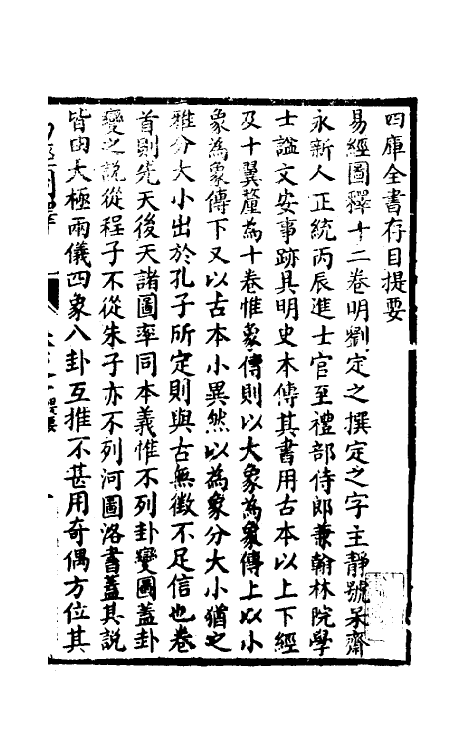 四庫全書存目提要
易經圖釋十二卷明劉定之撰定之字主靜號呆齋
永新人正統丙辰進士官至禮部侍郎兼翰林院學
士謚文安事跡具明史本傳其書用古本以上下經
及十翼釐為十卷惟彖傳則以大象為象傳上以小
象為象傳下又以古本小異然以為象分大小猶之
雅分大小出於孔子所定則與古無徵不足信也卷
首則先天後天諸圖率同本義惟不列卦變圖蓋卦
變之說從程子不從朱子亦不列河圖洛書蓋其說
皆由太極兩儀四象八卦互推不甚用奇偶方位其